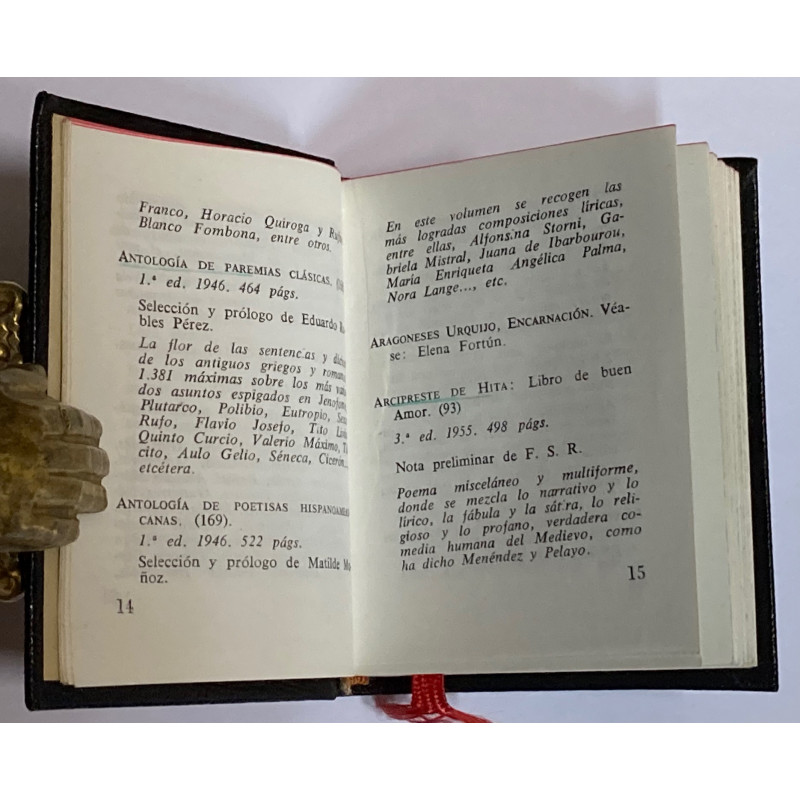 Franco, Horacio Quiroga y
Blanco Fombona, entre otros.
ANTOLOGÍA DE PAREMIAS CLÁSICAS.
1.ª ed. 1946. 464 págs.
Selección y prólogo de Eduardo
bles Pérez.
La flor de las sentencias y
de los antiguos griegos y
1.381 máximas sobre los más
dos asuntos espigados en
Plutarco, Polibio, Eutropio,
Rufo, Flavio Josefo, Tito
Quinto Curcio, Valerio Máximo,
cito, Aulo Gelio, Séneca, Cicerón...
etcétera.
ANTOLOGÍA DE POETISAS
CANAS. (169).
1.ª ed. 1946. 522 págs.
Selección y prólogo de Matilde
ñoz.
14
En este volumen se recogen las
más logradas composiciones líricas,
entre ellas, Alfonsina Storni, Ga-
briela Mistral, Juana de Ibarbourou,
María Enriqueta Angélica Palma,
Nora Lange..., etc.
ARAGONESES URQUIJO, ENCARNACIÓN. Véa-
se: Elena Fortún.
ARCIPRESTE DE HITA: Libro de buen
Amor. (93)
3.ª ed. 1955. 498 págs.
Nota preliminar de F. S. R.
Poema misceláneo y multiforme,
donde se mezcla lo narrativo y lo
lírico, la fábula y la sátira, lo reli-
gioso y lo profano, verdadera co-
media humana del Medievo, como
ha dicho Menéndez y Pelayo.
15